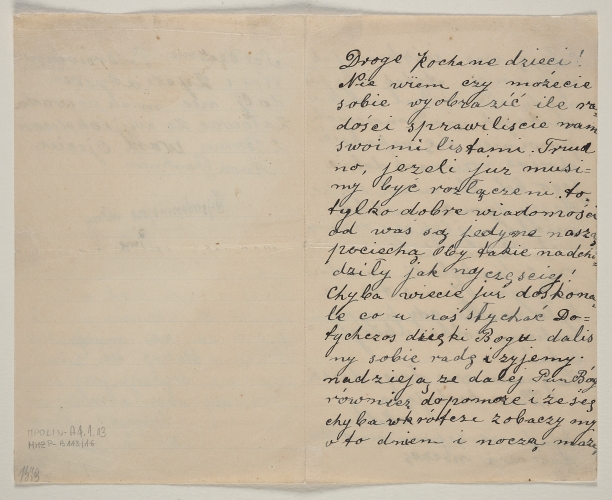 Drogе kochane dzieci!
Nie wiem czy możecie
sobie wyobrazić ile ra-
dości sprawiliscie nam
swoimi listami. Trud
no, jezeli juz musi=
my być rozłączeni. to-
tylko dobre wiadomości
od was są jedyne naszą
pociechą Oby takie nadcho
dziły jak najczęsciej!
Chyba wiecie już doskona-
le co u nas słychać Do-
tychczas dzięki Bogu dalis
my sobie radę i zyjemy.
nadzieją ze dalej Pan Bóg
równiez dopomoze i że się
chyba wkrótcze zobaczymy
o to dniem i noczą mazą
MPOLIN-A4.1.13